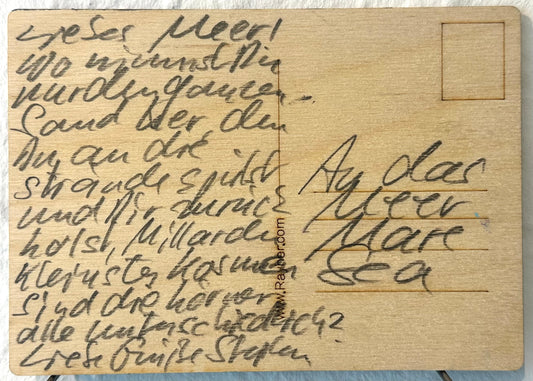 Liebes Meer!
Wo nimmst Du
nur den ganzen
Sand her den
Du an die
Strände spülst
und Dir zurück
holst, Milliarden
kleinster Kosmen
sind die Körner
alle unterschiedlich?
Liebe Grüße Stefan
An das
Meer
Mare
Sea